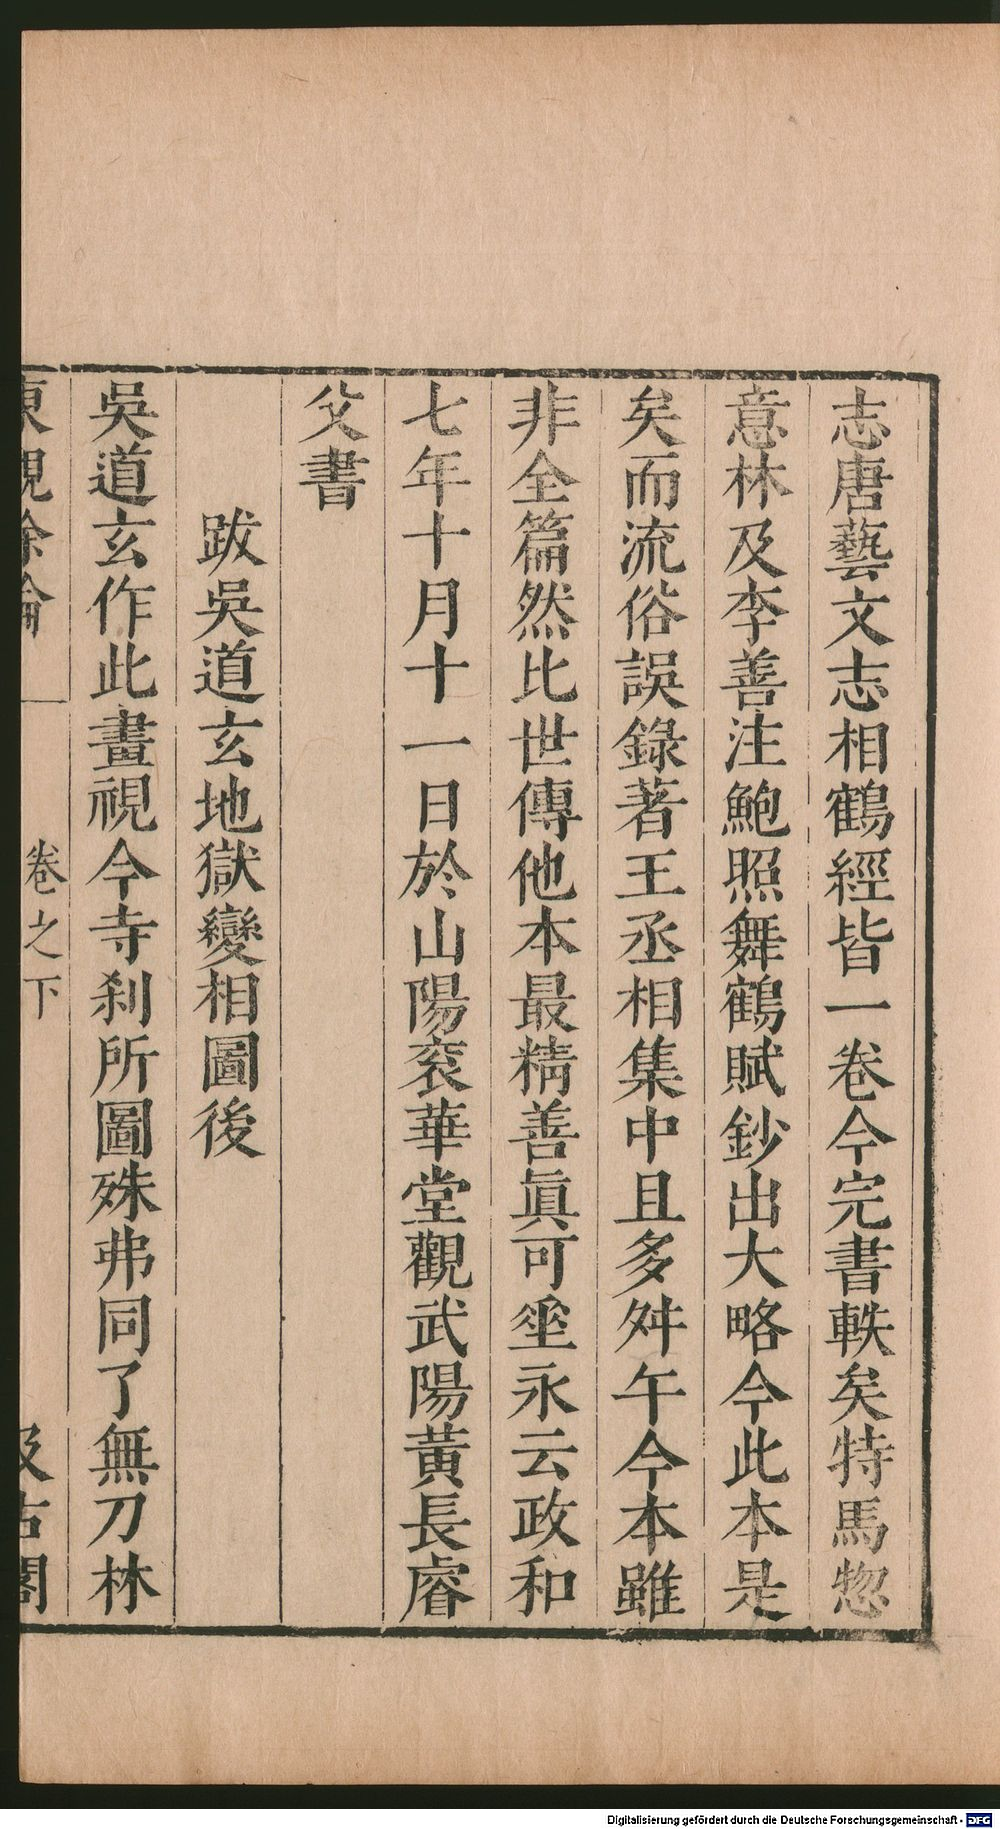 志唐藝文志相鶴經皆一卷今完書軼矣特馬惣
意林及李善注鮑照舞鶴賦鈔出大略今此本是
矣而流俗誤錄著王丞相集中且多舛午今本雖
非全篇然比世傳他本最精善眞可垂永云政和
七年十月十一日於山陽衮華堂觀武陽黃長睿
父書
跋吳道玄地獄變相圖後
吳道玄作此畫視今寺刹所圖殊弗同了無刀林
東觀餘論 卷之下 汲古閣
Digitalisierung gefördert durch die Deutsche Forschungsgemeinschaft - DFG